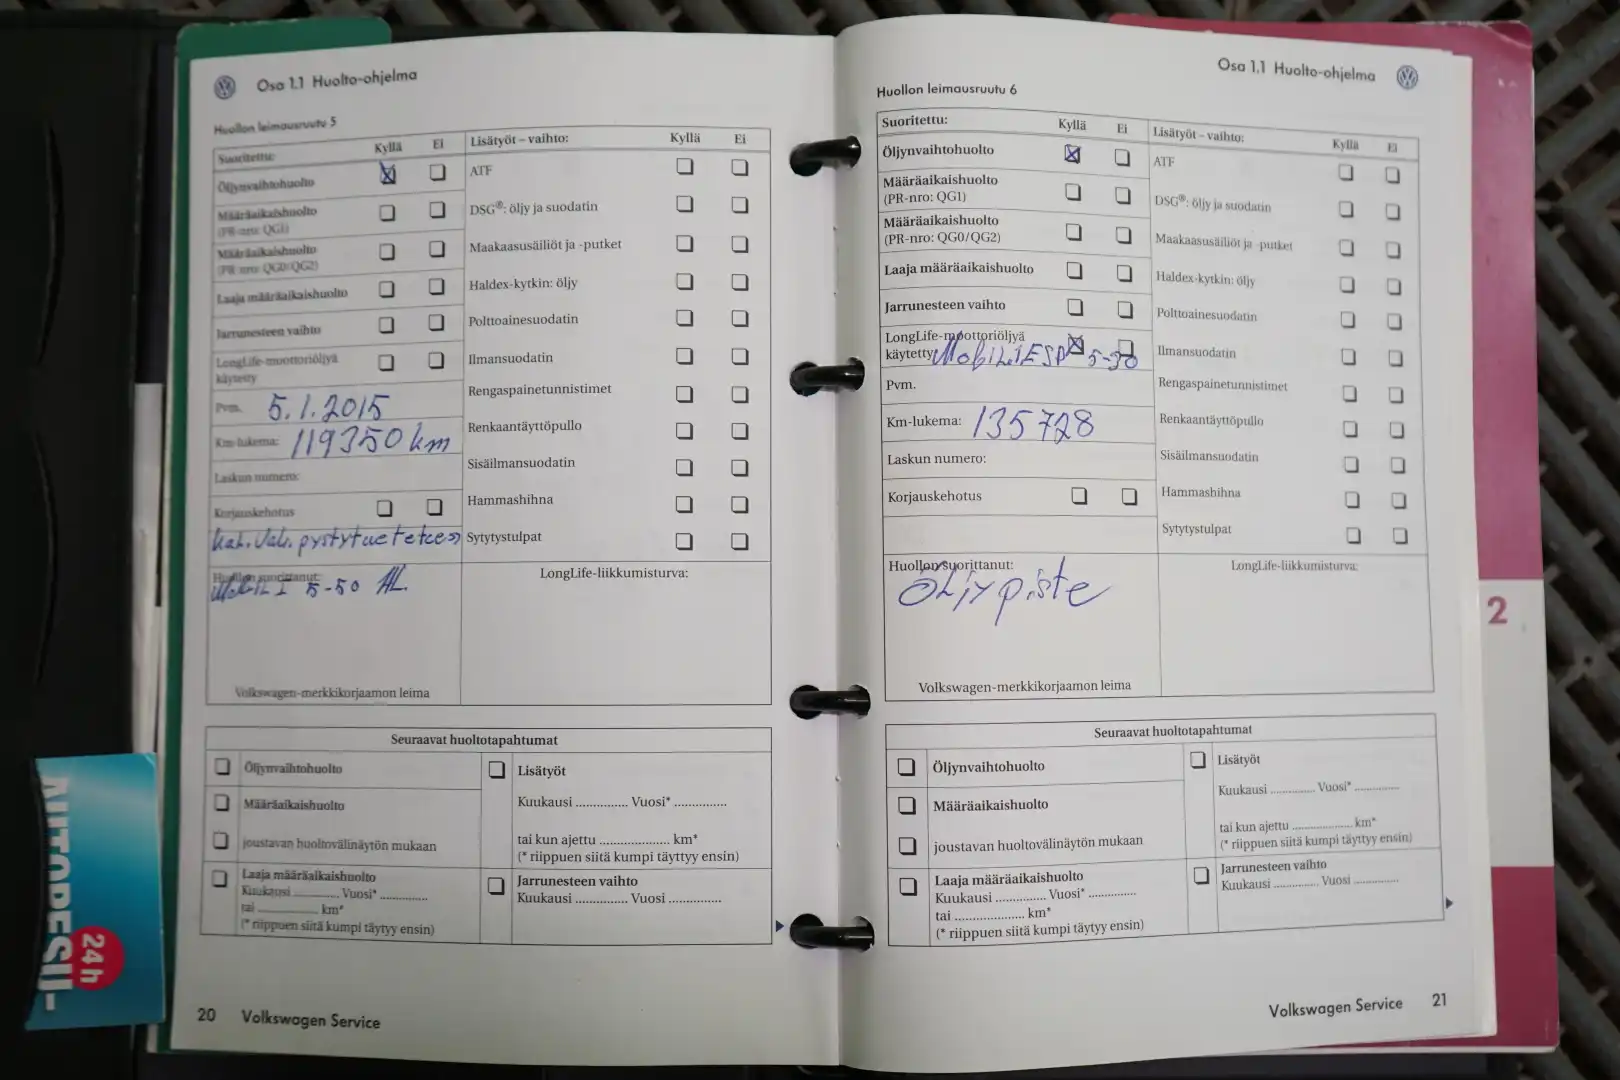 Osa 1.1 Huolto-ohjelma
Huollon leimausruutu 5
Suoritettu: Kyllä Ei
Öljynvaihtohuolto
Määräaikaishuolto
(PR-nro: QG1)
Määräaikaishuolto
(PR-nro: QG0/QG2)
Laaja määräaikaishuolto
Jarrunesteen vaihto
LongLife-moottoriöljyä
käytetty
Pvm. 5.1.2015
Km-lukema: 119350 km
Laskun numero:
Korjauskehotus
Huollon suorittanut:
5-50
Volkswagen-merkkikorjaamon leima
Lisätyöt – vaihto: Kyllä Ei
ATF
DSG®: öljy ja suodatin
Maakaasusäiliöt ja -putket
Haldex-kytkin: öljy
Polttoainesuodatin
Ilmansuodatin
Rengaspainetunnistimet
Renkaantäyttöpullo
Sisäilmansuodatin
Hammashihna
Sytytystulpat
LongLife-liikkumisturva:
Seuraavat huoltotapahtumat
Öljynvaihtohuolto
Määräaikaishuolto
joustavan huoltovälinäytön mukaan
Laaja määräaikaishuolto
Kuukausi .............. Vuosi* ..............
tai .................. km*
(* riippuen siitä kumpi täytyy ensin)
Lisätyöt
Kuukausi ............... Vuosi* ...............
tai kun ajettu .................... km*
(* riippuen siitä kumpi täyttyy ensin)
Jarrunesteen vaihto
Kuukausi ............... Vuosi ...............
20 Volkswagen Service
Osa 1.1 Huolto-ohjelma
Huollon leimausruutu 6
Suoritettu: Kyllä Ei
Öljynvaihtohuolto
Määräaikaishuolto
(PR-nro: QG1)
Määräaikaishuolto
(PR-nro: QG0/QG2)
Laaja määräaikaishuolto
Jarrunesteen vaihto
LongLife-moottoriöljyä
käytetty Mobil1 ESP 5-30
Pvm.
Km-lukema: 135728
Laskun numero:
Korjauskehotus
Huollon suorittanut:
Öljypiste
Volkswagen-merkkikorjaamon leima
Lisätyöt – vaihto: Kyllä Ei
ATF
DSG®: öljy ja suodatin
Maakaasusäiliöt ja -putket
Haldex-kytkin: öljy
Polttoainesuodatin
Ilmansuodatin
Rengaspainetunnistimet
Renkaantäyttöpullo
Sisäilmansuodatin
Hammashihna
Sytytystulpat
LongLife-liikkumisturva:
Seuraavat huoltotapahtumat
Öljynvaihtohuolto
Määräaikaishuolto
joustavan huoltovälinäytön mukaan
Laaja määräaikaishuolto
Kuukausi ............... Vuosi* ..............
tai .................... km*
(* riippuen siitä kumpi täytyy ensin)
Lisätyöt
Kuukausi .............. Vuosi* ..............
tai kun ajettu .................... km*
(* riippuen siitä kumpi täyttyy ensin)
Jarrunesteen vaihto
Kuukausi .............. Vuosi ..............
Volkswagen Service 21
2
AUTOPESU-
24 h